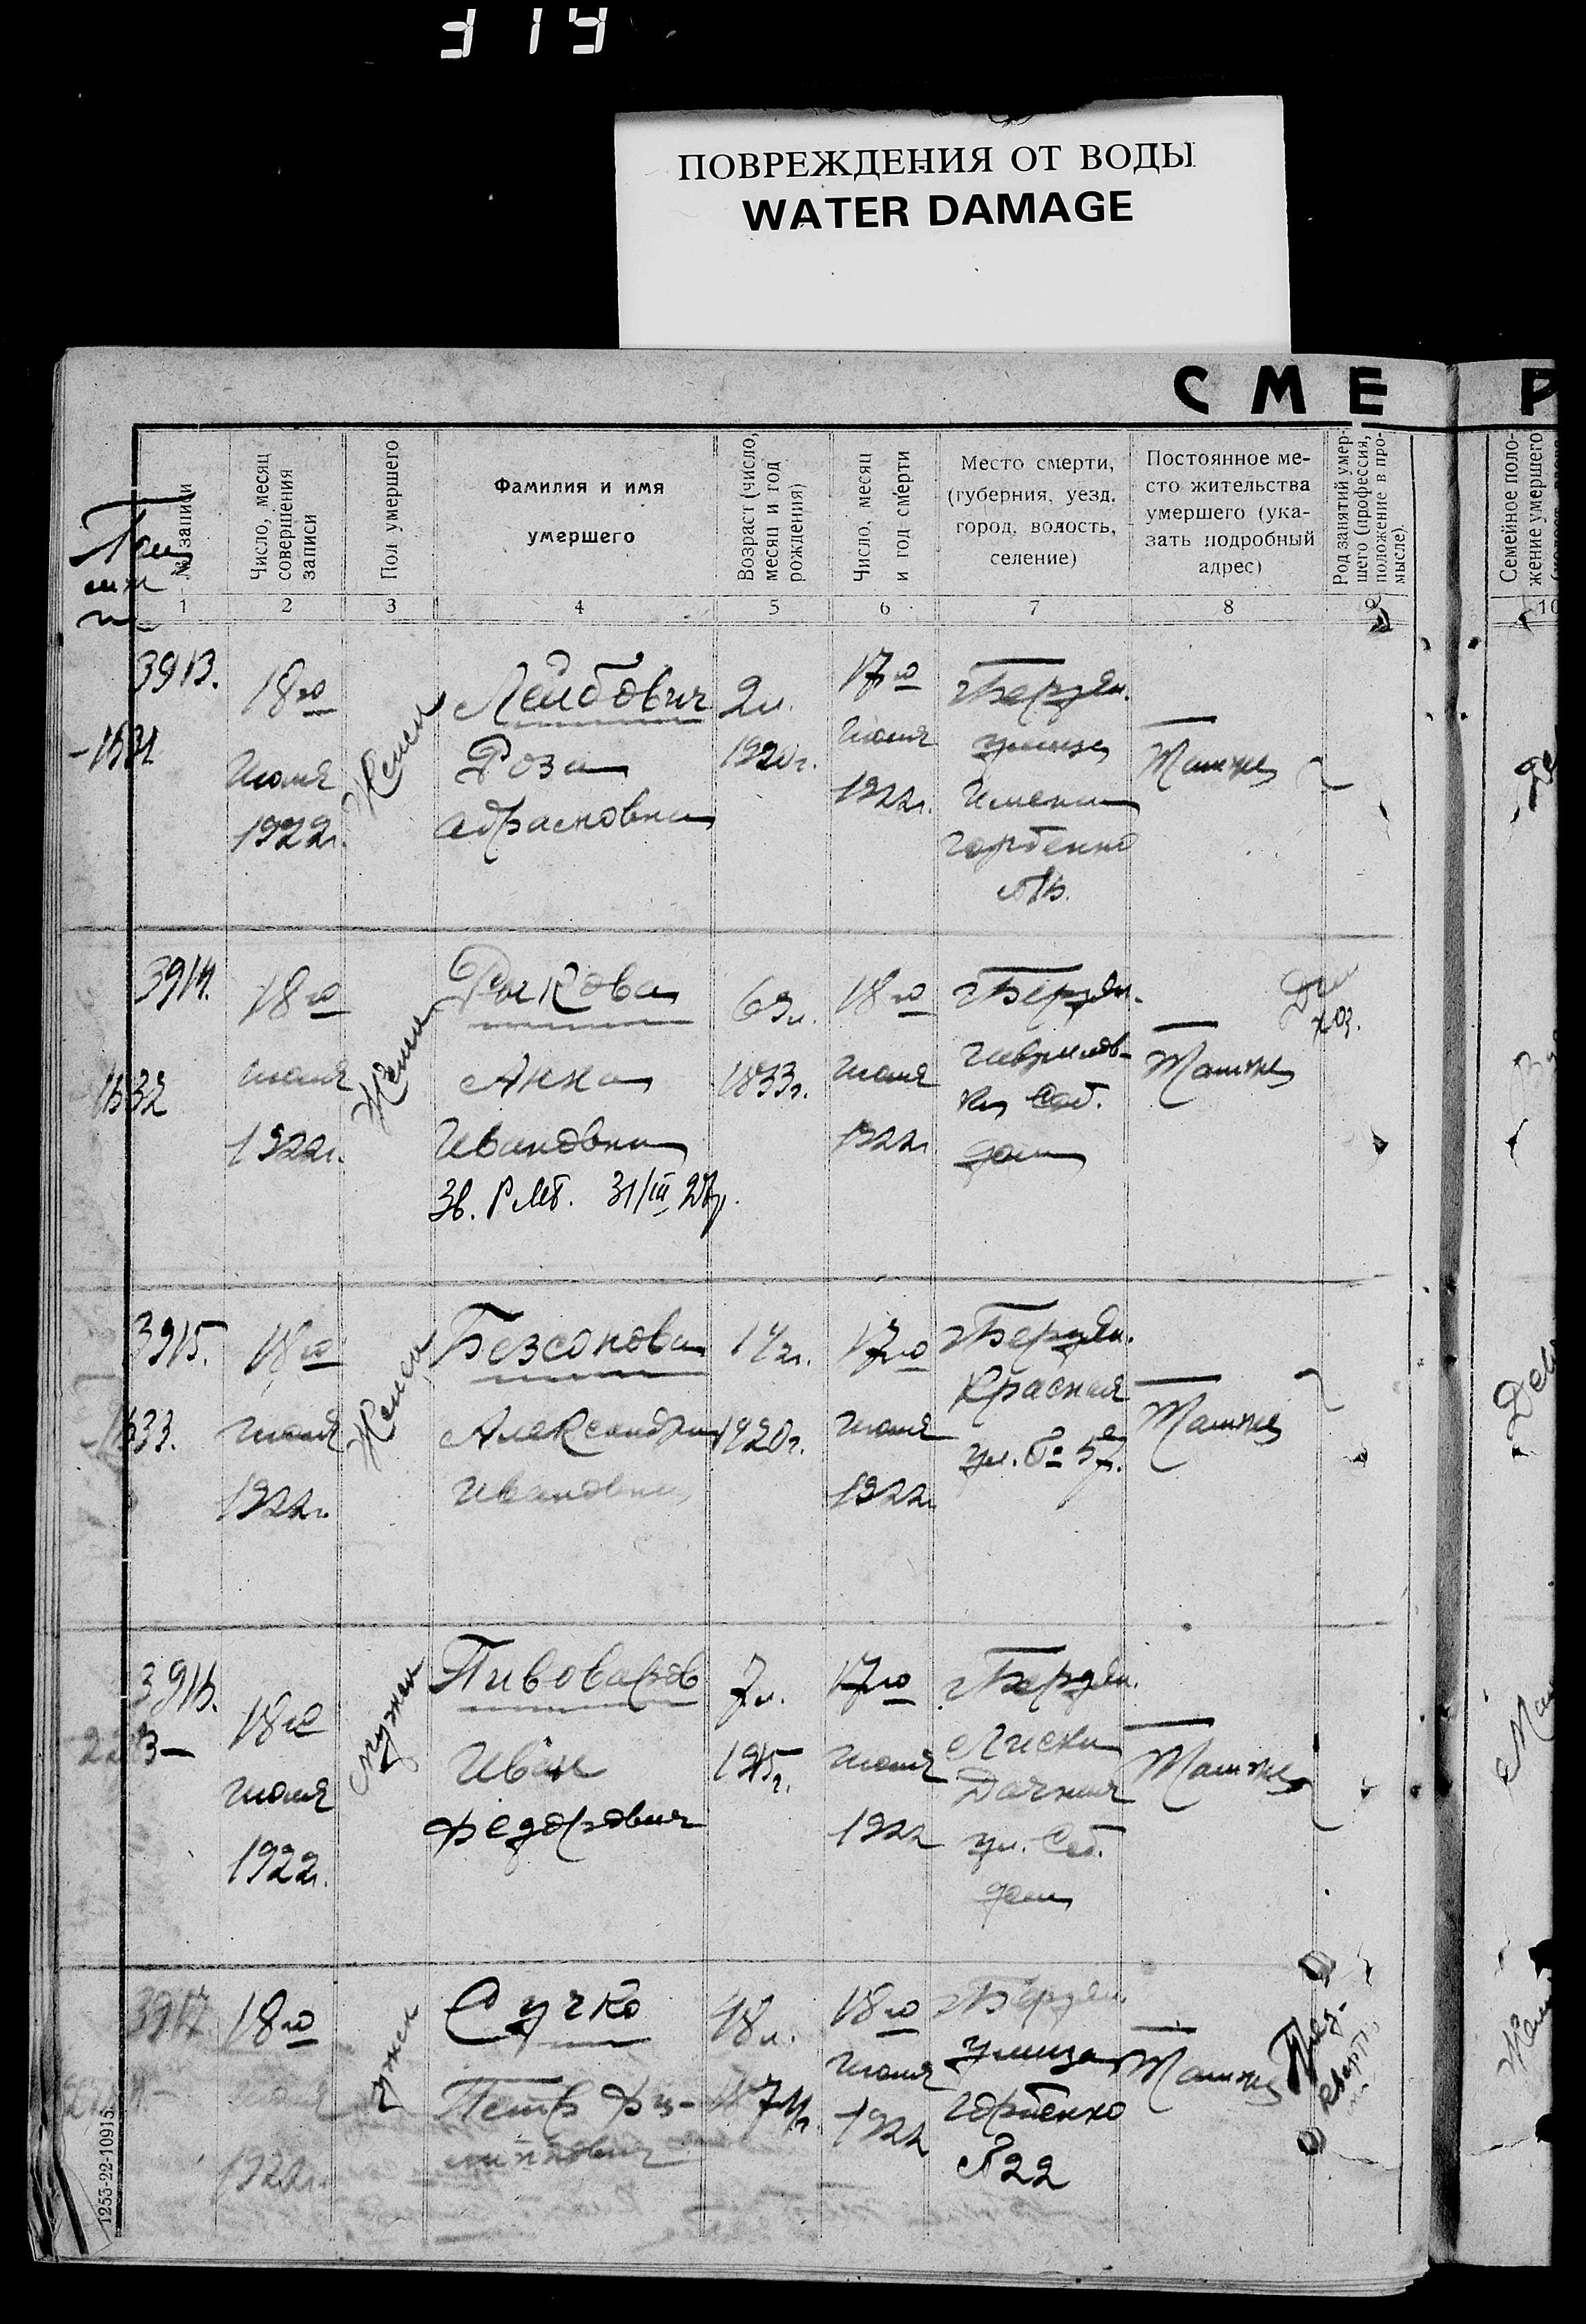 319
ПОВРЕЖДЕНИЯ ОТ ВОДЫ
WATER DAMAGE
СМЕ
Р
№ записи
Число, месяц
совершения
записи
Пол умершего
Фамилия и имя
умершего
Возраст (число,
месяц и год
рождения)
Число, месяц
и год смерти
Место смерти,
(губерния, уезд,
город, волость,
селение)
Постоянное ме-
сто жительства
умершего (ука-
зать подробный
адрес)
Род занятий умер-
шего (профессия,
положение в про-
мысле).
Семейное поло-
жение умершего
1 2 3 4 5 6 7 8 9 10
3913.
18го
Июля
1922г.
Женск
Лейбович
Роза
Абрамовна
2л.
1920г.
17го
июля
1922г.
Бердян.
улица
Имени
Горбенко
Там же
3914.
1632
18го
июля
1922г.
Женск
Рыкова
Анна
Ивановна
31/III 27г.
18го
июля
1922г
Бердян.
Соб.
дом
Там же
Дом
хоз.
3915.
1633.
18го
июля
1922г.
Женск
Безсонова
Александра
Ивановна
1920г.
17го
июля
1922г.
Бердян.
Красная
ул. 57.
Там же
3916.
18го
июля
1922г.
мужск
Пивоваров
Иван
Федорович
7л.
1915г.
17го
июля
1922
Бердян.
Лиски
Дачная
ул. Соб.
дом
Там же
3917.
18го
июля
1922г.
мужск
Сучко
Петр Фи-
липпович
48л.
1874г.
18го
июля
1922
Бердян.
улица
Горбенко
№22
Там же
1253-22-10915.